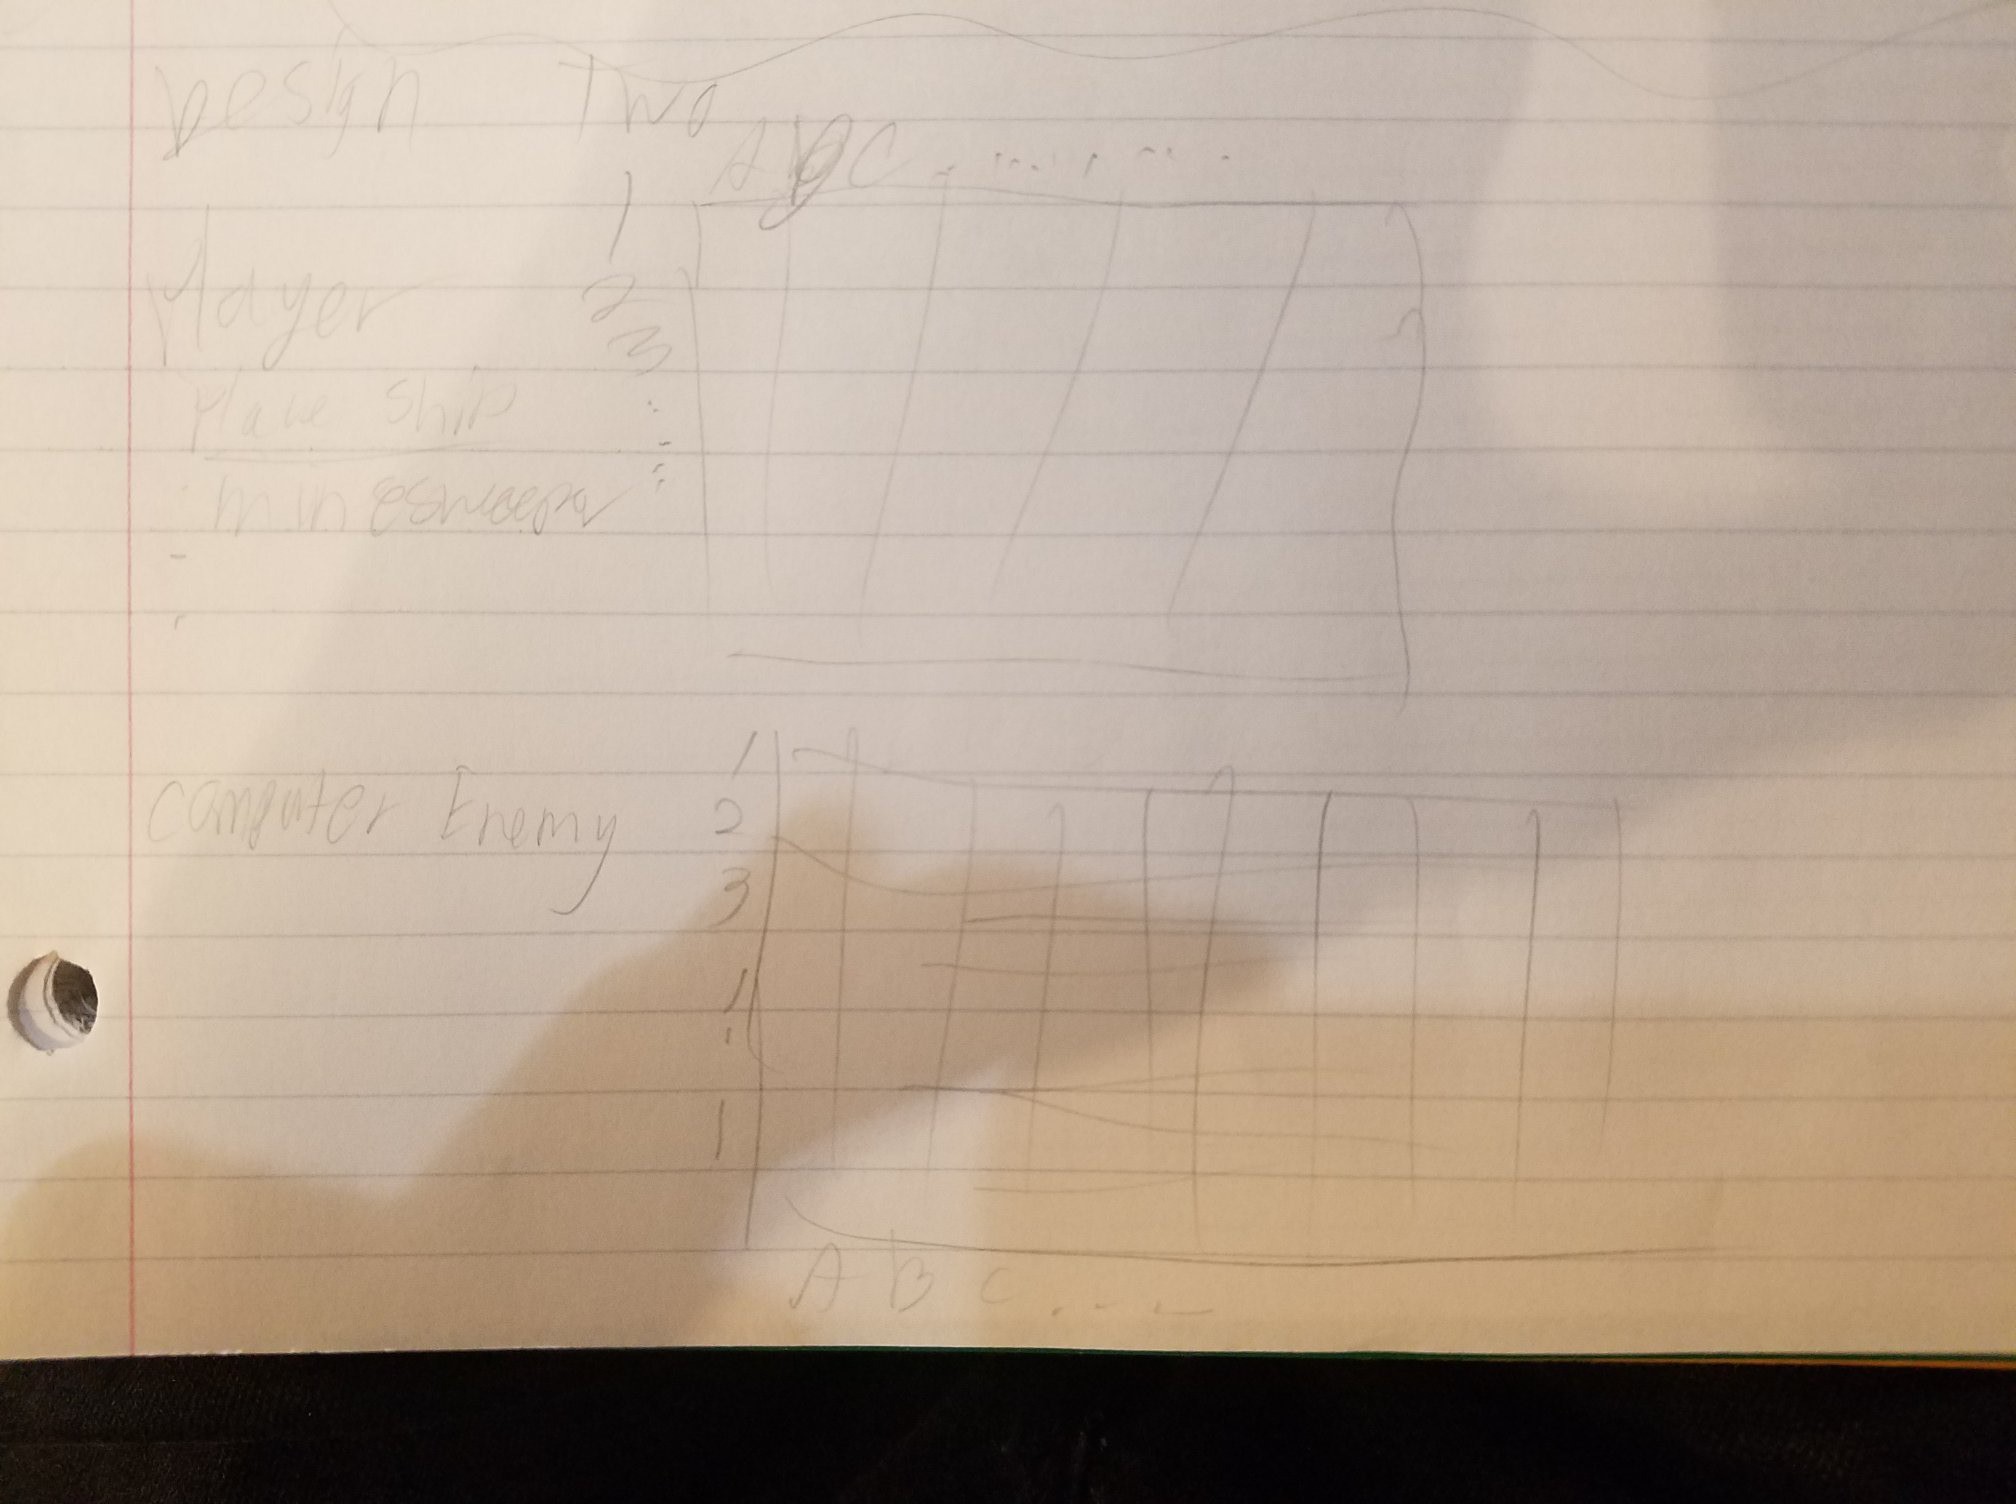 Design Two
A B C . . . . . . . . .
1
Player 2
3
Place Ship
minesweeper
Computer Enemy
1
2
3
1
1
A B C . - -